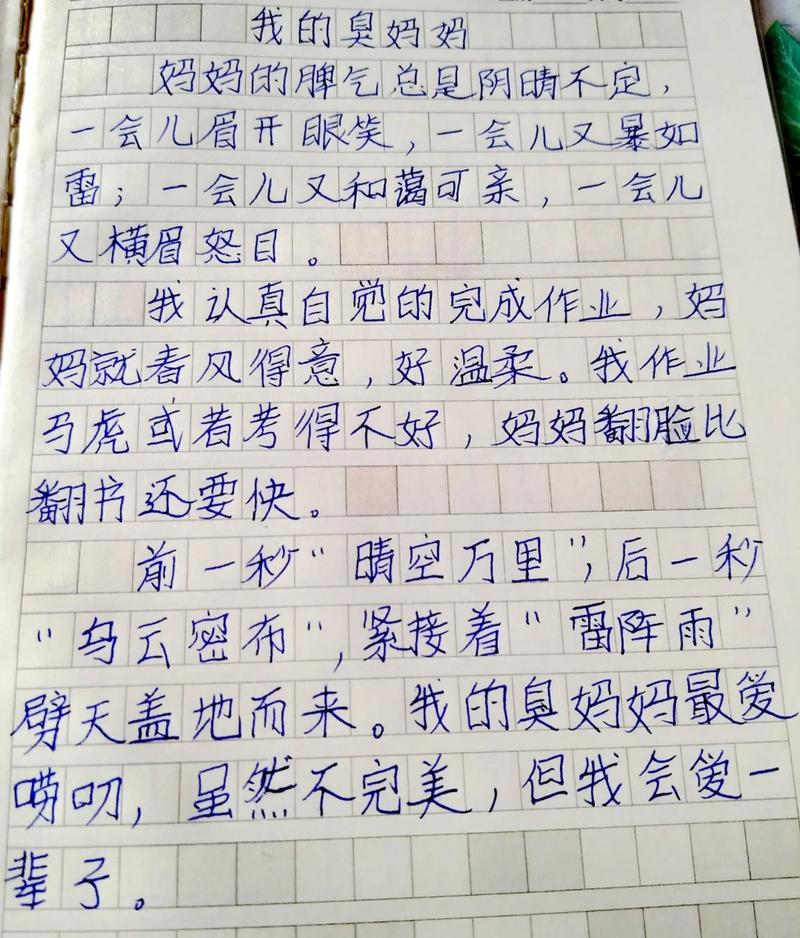 我的臭妈妈
妈妈的脾气总是阴晴不定，
一会儿眉开眼笑，一会儿又暴如
雷；一会儿又和蔼可亲，一会儿
又横眉怒目。
我认真自觉的完成作业，妈
妈就春风得意，好温柔。我作业
马虎或者考得不好，妈妈翻脸比
翻书还要快。
前一秒“晴空万里”，后一秒
“乌云密布”，紧接着“雷阵雨”
劈天盖地而来。我的臭妈妈最爱
唠叨，虽然不完美，但我会爱一
辈子。